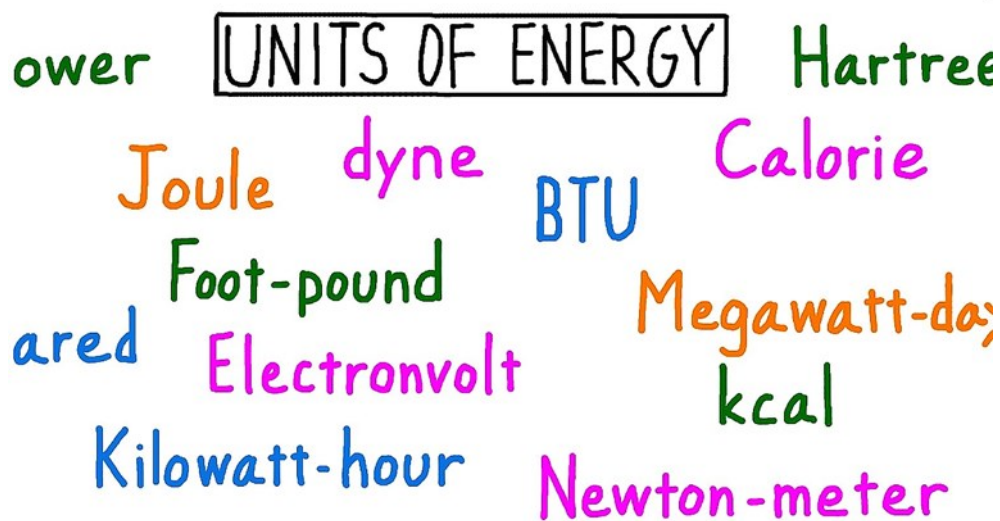 ower
UNITS OF ENERGY
Hartree
dyne
Calorie
Joule
BTU
Foot-pound
Megawatt-day
ared
Electronvolt
kcal
Kilowatt-hour
Newton-meter